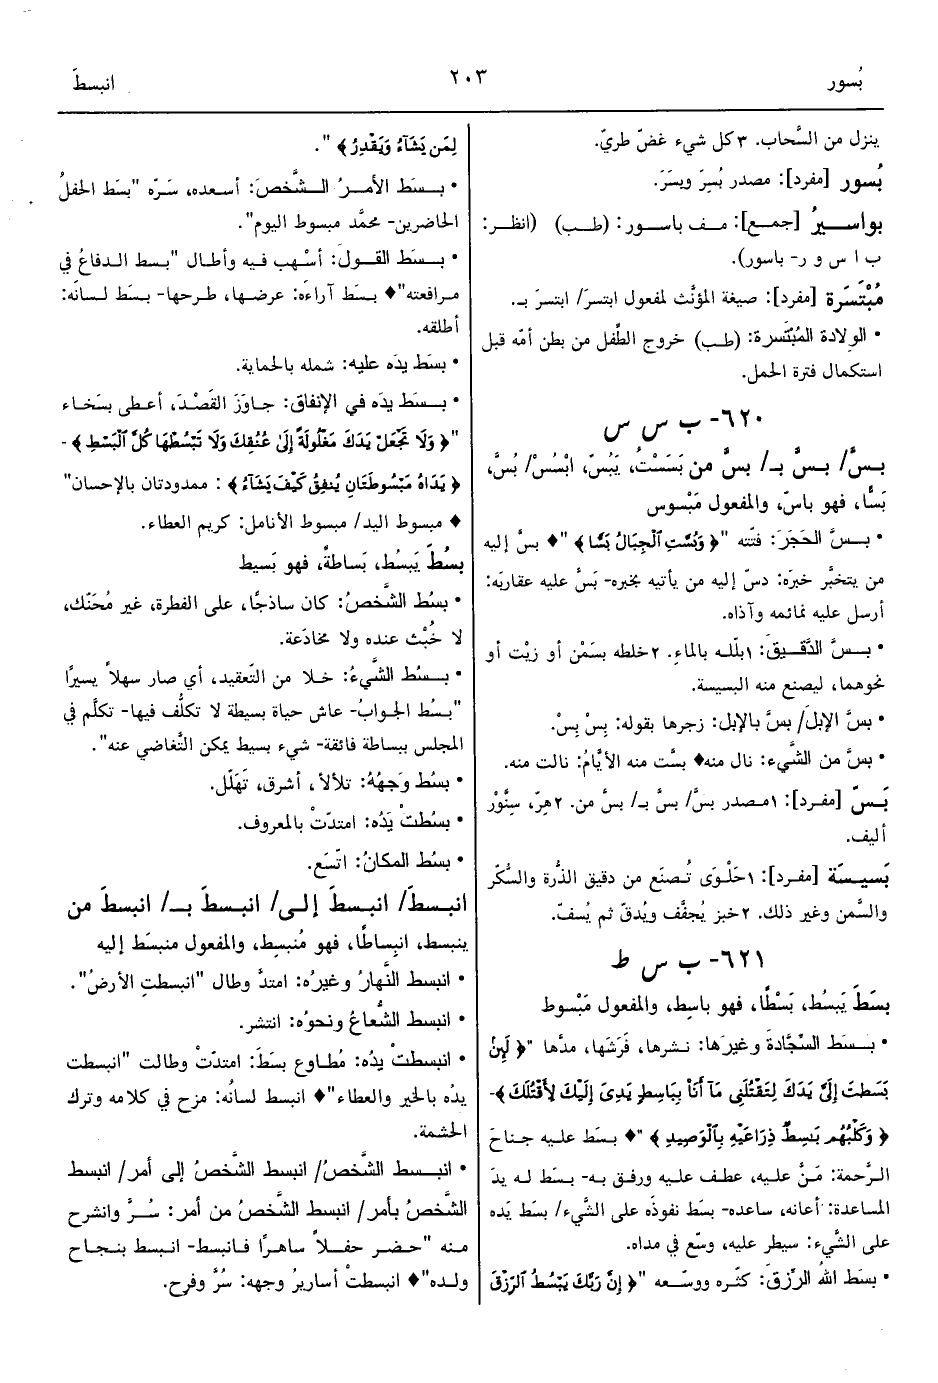 بُسور
٢٠٣
انبسطَ
ينزل من السَّحاب. ٣ كل شيء غضّ طريّ.
بُسور [مفرد]: مصدر بُسِرَ ويسَرَ.
بواسيرُ [جمع]: مف باسور: (طب) (انظر:
ب ا س و ر- باسور).
مُبْتَسَرة [مفرد]: صيغة المؤنَّث لمفعول ابتسرَ/ ابتسرَ بـ.
• الوِلادة المُبْتَسرة: (طب) خروج الطِّفل من بطن أمّه قبل
استكمال فترة الحمل.
٦٢٠- ب س س
بسَّ/ بسَّ بـ/ بسَّ من بَسَسْتُ، يَبُسّ، ابْسُسْ/ بُسَّ،
بَسًّا، فهو باسّ، والمفعول مَبْسوس
• بسَّ الحَجَرَ: فتّته "﴿ وَبُسَّتِ ٱلْجِبَالُ بَسًّا ﴾" ♦ بسَّ إليه
من يتخبَّر خبرَه: دسّ إليه من يأتيه بخبره- بَسَّ عليه عقاربَه:
أرسل عليه نمائمه وآذاه.
• بسَّ الدَّقيقَ: ١ بلّله بالماء. ٢ خلطه بسَمْن أو زيْت أو
نحوهما، ليصنع منه البسيسة.
• بسَّ الإبلَ/ بسَّ بالإبل: زجرها بقوله: بِسْ بِسْ.
• بسَّ من الشَّيء: نال منه ♦ بسَّت منه الأيَّامُ: نالت منه.
بَسّ [مفرد]: ١ مصدر بسَّ/ بسَّ بـ/ بسَّ من. ٢ هِرّ، سِنَّوْر
أليف.
بَسيسَة [مفرد]: ١ حَلْوَى تُصنَع من دقيق الذُّرة والسُّكّر
والسَّمن وغير ذلك. ٢ خبز يُجفَّف ويُدقّ ثم يُسفّ.
٦٢١- ب س ط
بسَطَ يَبسُط، بَسْطًا، فهو باسِط، والمفعول مَبْسوط
• بسَط السِّجَّادةَ وغيرَها: نشرها، فَرَشَها، مدَّها "﴿ لَئِنۢ
بَسَطتَ إِلَىَّ يَدَكَ لِتَقْتُلَنِى مَآ أَنَا۠ بِبَاسِطٍ يَدِىَ إِلَيْكَ لِأَقْتُلَكَ ﴾-
﴿ وَكَلْبُهُم بَٰسِطٌ ذِرَاعَيْهِ بِٱلْوَصِيدِ ﴾" ♦ بسَط عليه جناحَ
الرَّحمة: مَنَّ عليه، عطف عليه ورفق به- بسَط له يدَ
المساعدة: أعانه، ساعده- بسَط نفوذَه على الشَّيء/ بسَط يَده
على الشَّيء: سيطر عليه، وسّع في مداه.
• بسَط اللهُ الرِّزقَ: كثّره ووسّعه "﴿ إِنَّ رَبَّكَ يَبْسُطُ ٱلرِّزْقَ
لِمَن يَشَآءُ وَيَقْدِرُ ﴾".
• بسَط الأمرُ الشَّخصَ: أسعده، سَرّه "بسَط الحفلُ
الحاضرين- محمَّد مبسوط اليوم".
• بسَط القولَ: أسْهب فيه وأطال "بسط الدفاعُ في
مرافعته" ♦ بسَط آراءَه: عرضها، طرحها- بسَط لسانَه:
أطلقه.
• بسَط يدَه عليه: شمله بالحماية.
• بسَط يدَه في الإنفاق: جاوَزَ القَصْدَ، أعطى بسَخاء
"﴿ وَلَا تَجْعَلْ يَدَكَ مَغْلُولَةً إِلَىٰ عُنُقِكَ وَلَا تَبْسُطْهَا كُلَّ ٱلْبَسْطِ ﴾-
﴿ يَدَاهُ مَبْسُوطَتَانِ يُنفِقُ كَيْفَ يَشَآءُ ﴾: ممدودتان بالإحسان"
♦ مبسوط اليد/ مبسوط الأنامل: كريم العطاء.
بسُطَ يَبسُط، بَساطةً، فهو بَسيط
• بسُط الشَّخصُ: كان ساذجًا، على الفطرة، غير مُحَنّك،
لا خُبْث عنده ولا مخادَعة.
• بسُط الشَّيءُ: خلا من التَّعقيد، أي صار سهلاً يسيرًا
"بسُط الجوابُ- عاش حياة بسيطة لا تكلُّف فيها- تكلَّم في
المجلس ببساطة فائقة- شيء بسيط يمكن التَّغاضي عنه".
• بسُط وَجهُهُ: تلألأ، أشرق، تَهَلّل.
• بسُطتْ يَدُه: امتدّتْ بالمعروف.
• بسُط المكانُ: اتّسَع.
انبسطَ/ انبسطَ إلى/ انبسطَ بـ/ انبسطَ من
ينبسط، انبِساطًا، فهو مُنبسِط، والمفعول منبسَط إليه
• انبسط النَّهارُ وغيرُه: امتدَّ وطال "انبسطتِ الأرضُ".
• انبسط الشُّعاعُ ونحوُه: انتشر.
• انبسطتْ يدُه: مُطاوع بسَطَ: امتدّتْ وطالت "انبسطت
يدُه بالخير والعطاء" ♦ انبسط لسانُه: مزح في كلامه وترك
الحشمة.
• انبسط الشَّخصُ/ انبسط الشَّخصُ إلى أمر/ انبسط
الشَّخصُ بأمر/ انبسط الشَّخصُ من أمر: سُرَّ وانشرح
منه "حضر حفلاً ساهرًا فانبسط- انبسط بنجاح
ولده" ♦ انبسطتْ أساريرُ وجهه: سُرَّ وفرح.